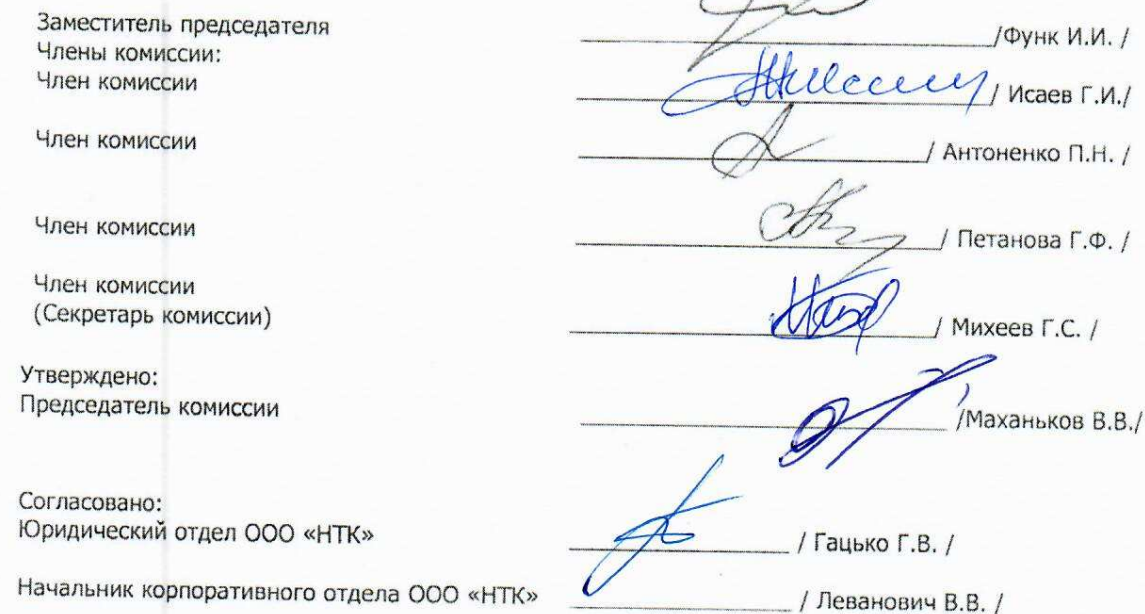 Заместитель председателя /Функ И.И. /
Члены комиссии:
Член комиссии / Исаев Г.И./
Член комиссии / Антоненко П.Н. /
Член комиссии / Петанова Г.Ф. /
Член комиссии
(Секретарь комиссии) / Михеев Г.С. /
Утверждено:
Председатель комиссии /Маханьков В.В./
Согласовано:
Юридический отдел ООО «НТК» / Гацько Г.В. /
Начальник корпоративного отдела ООО «НТК» / Леванович В.В. /